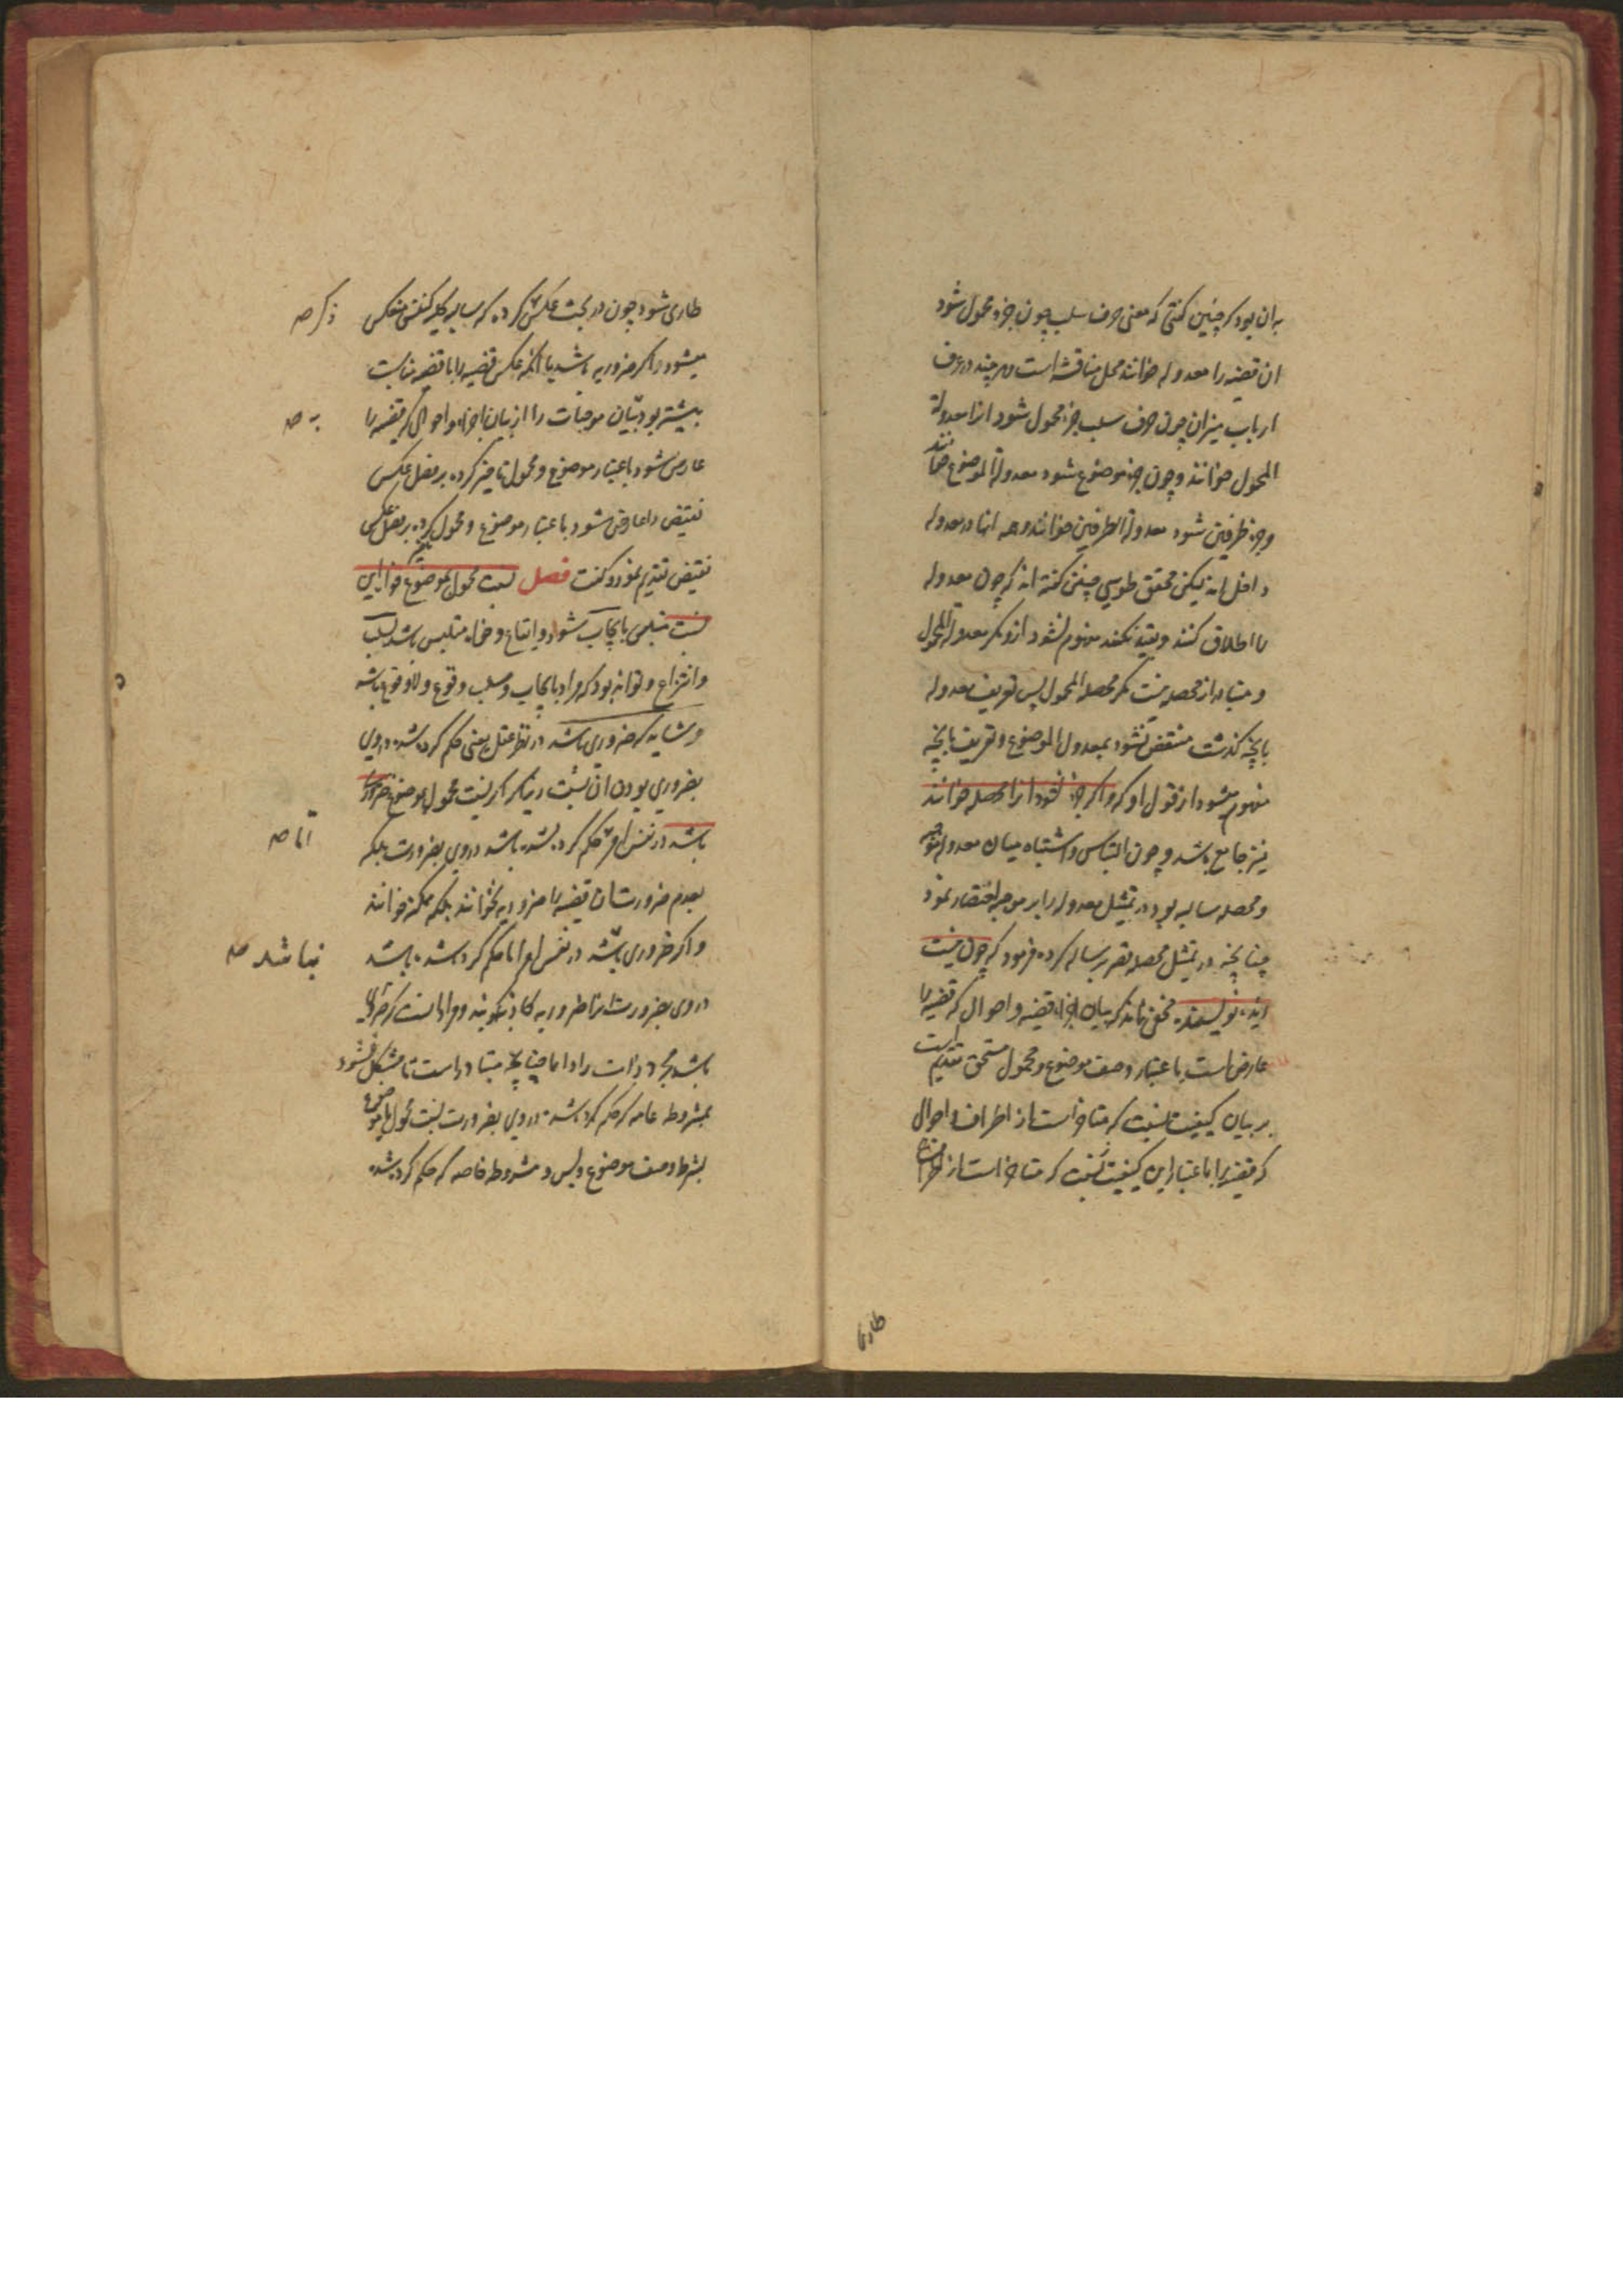 به ان بود که چنین کفتی که معنی حرف سلب چون جزء محمول شود
ان قضیه را معدوله خوانند محل مناقشه است هر چند در عرف
ارباب میزان چون حرف سلب جزء محمول شود انرا معدولة
المحمول خوانند و چون جزء موضوع شود معدولة الموضوع خوانند
و جزء طرفین شود معدولة الطرفین خوانند و همه اینها در معدوله
داخل اند لیکن محقق طوسی چنین کفته اند که چون معدوله
را اطلاق کنند و بقید نکنند مفهوم نشود ازو مکر معدولة المحمول
و متبادر از محصله نیست مکر محصلة المحمول پس تعریف معدوله
بانچه کذشت منتقض نشود بمعدولة الموضوع و تعریف بانچه
مفهوم میشود از قول او که و اکر جزء نشود انرا محصله خوانند
نیز جامع باشد و چون التباس و اشتباه میان معدوله موجبه
و محصله سالبه بود در تمثیل معدوله را بر موجبه اختصار نمود
چنانچه در تمثیل محصله تقریر سالبه کرده فرمود که چون نیست
زید نویسنده مخفی نماند که بیان اجزاء قضیه و احوال که قضیه را
عارض است باعتبار وصف موضوع و محمول مستحق تقدیم است
بر بیان کیفیت نسبت که متاخر است از اطراف و احوال
که قضیه را باعتبار این کیفیت نسبت که متاخر است از اطراف
طاری
طاری شود چون در بحث عکس ذکر کرده که سالبه کلیه کنفس منعکس
میشود اکر ضروریه باشد یا انکه عکس قضیه را با قضیه مناسبت
بیشتر بود بیان موجهات را از بیان اجزاء و احوالی که قضیه را
عارض شود باعتبار موضوع و محمول تاخیر کرده بر فصل عکس
نقیض را عارض شود باعتبار موضوع و محمول تاخیر کرده بر فصل عکس
نقیض تقدیم نمود و کفت فصل نسبت محمول بموضوع خواه این
نسبت متلبس بایجاب شود و ایقاع و خواه متلبس باشد بسلب
و انتزاع و تواند بود که مراد بایجاب و سلب وقوع و لا وقوع باشد
و شاید که ضروری باشد در نظر عقل یعنی حکم کرده باشد در وی
بضروری بودن ان نسبت دیکر اکر نسبت محمول بموضوع ضروری
باشد در نفس امر حکم کرده نشده باشد در وی بضرورت بلکه
بعدم ضرورت ان قضیه را ضروریه نخوانند بلکه ممکنه خوانند
و اکر ضروری باشد در نفس امر اما حکم کرده شده باشد
در وی بضرورت انرا ضروریه کاذبه کویند و مراد از نسبت که ضروری
باشد مجرد ذات را دائما چنانچه متبادر است تا مشکل نشود
بمشروطه عامه که حکم کرده باشد در وی بضرورت نسبت محمول بموضوع
بشرط وصف موضوع و بس و مشروطه خاصه که حکم کرده شد
ذکر صه
به صه
اما صه
نباشد صه